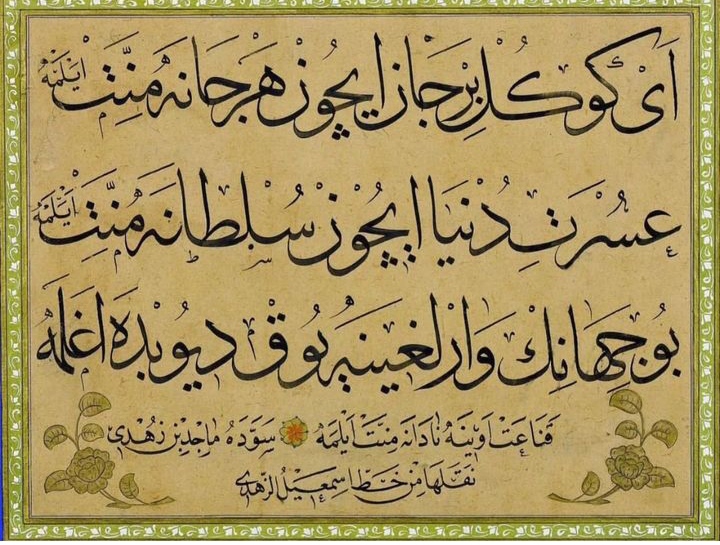 اَىْ كُوكُلْ بِرْجَانْ اِيچُونْ هَرْ جَانَه مِنَّتْ اَيْلَمَهْ
عُسْرَتِ دُنْيَا اِيچُونْ سُلْطَانَه مِنَّتْ اَيْلَمَهْ
بُو جِهَانِكْ وَارْلِغِينَه يُوقْ دِيُو بَدَه اَغْلَمَهْ
قَنَاعَتْ اَوِينَه نَادَانَه مِنَّتْ اَيْلَمَه سَوَّدَهُ مَاجِدْ بِنْ زُهْدِى
نَقَلَهَا مِنْ خَطِّ اِسْمَعِيلُ الزُّهْدِى